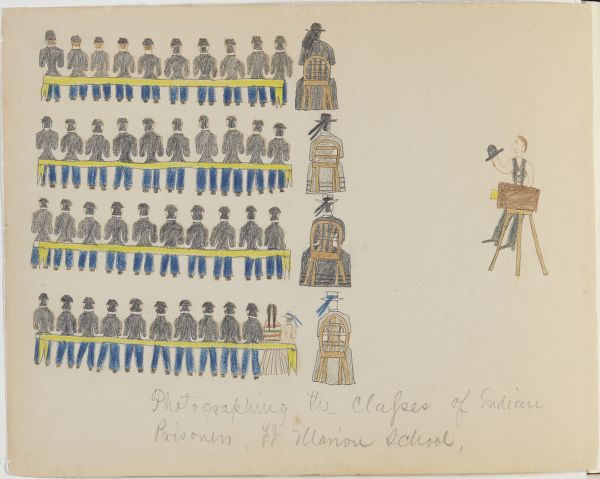 Photographing the Classes of Indian
Prisoners, Ft Marion School,